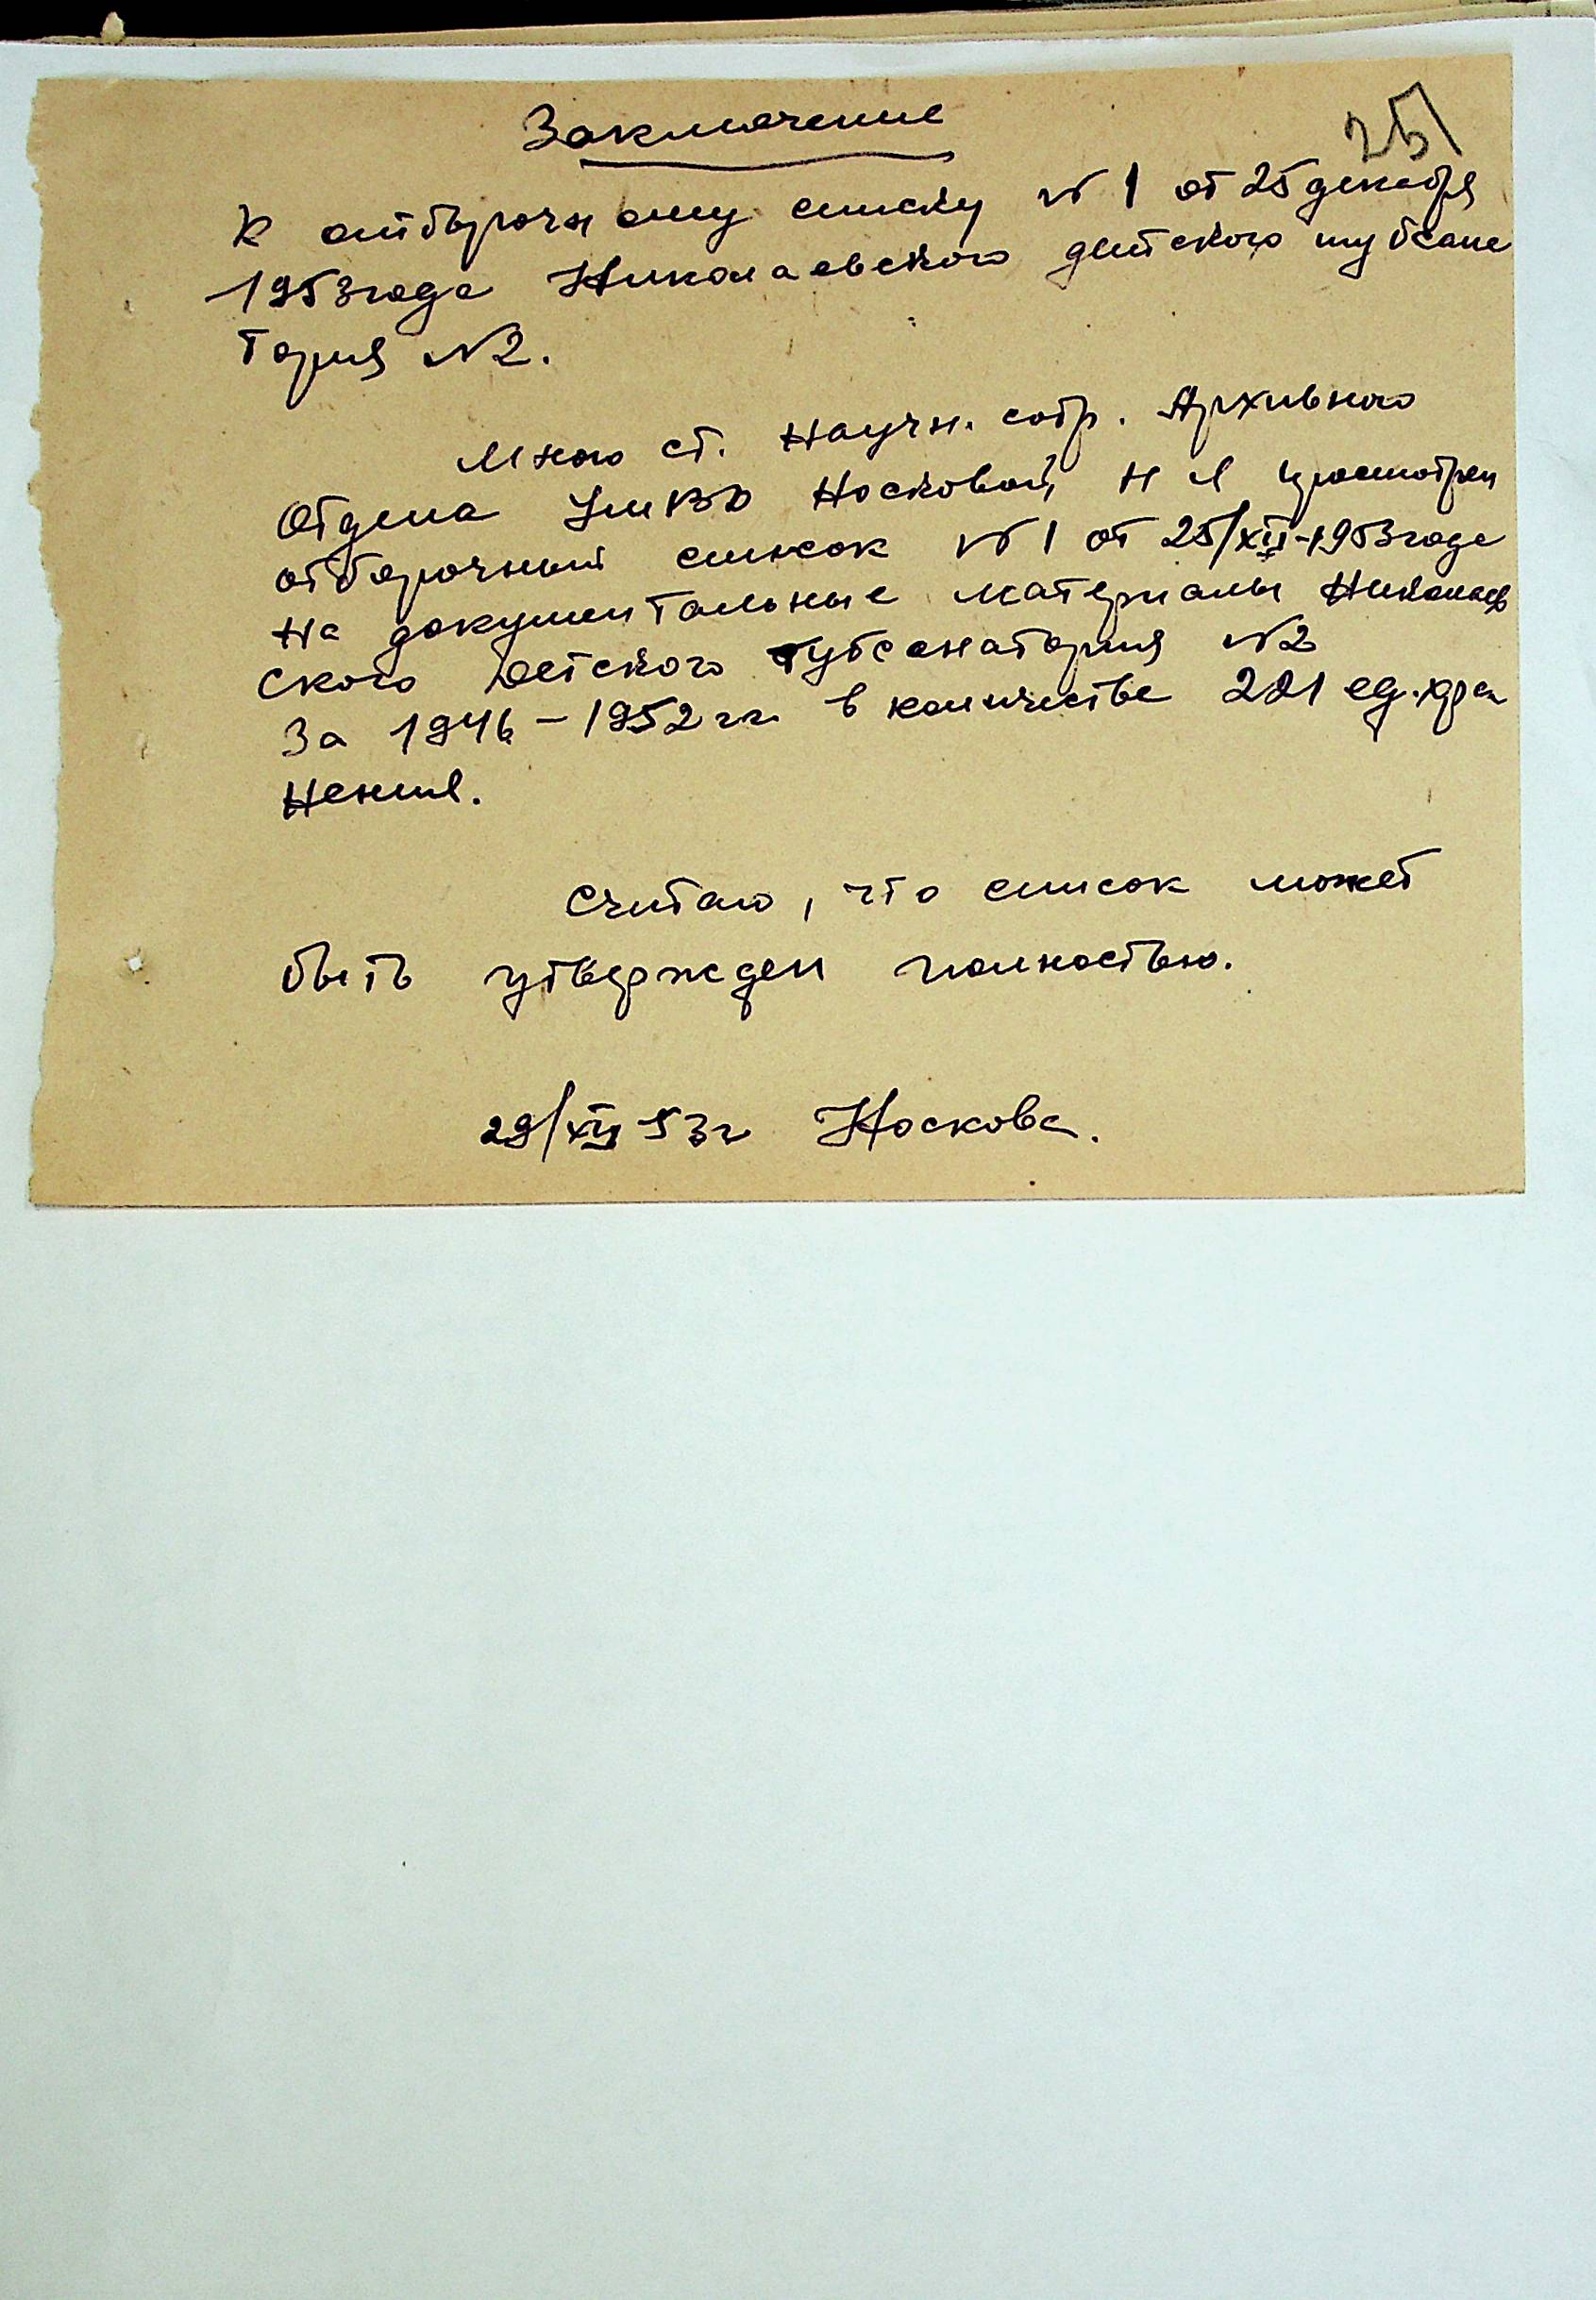 25
Заключение
К отборочному списку №1 от 25 декабря
1953 года Николаевского детского тубсана
тория №2.
Мною ст. научн. сотр. Архивного
отдела УМВД Носковой Н Я просмотрен
отборочный список №1 от 25/XII-1953 года
на документальные материалы Николаев
ского детского тубсанатория №2
за 1946-1952 гг. в количестве 221 ед. хра
нения.
Считаю, что список может
быть утвержден полностью.
29/XII 53 г Носкова.